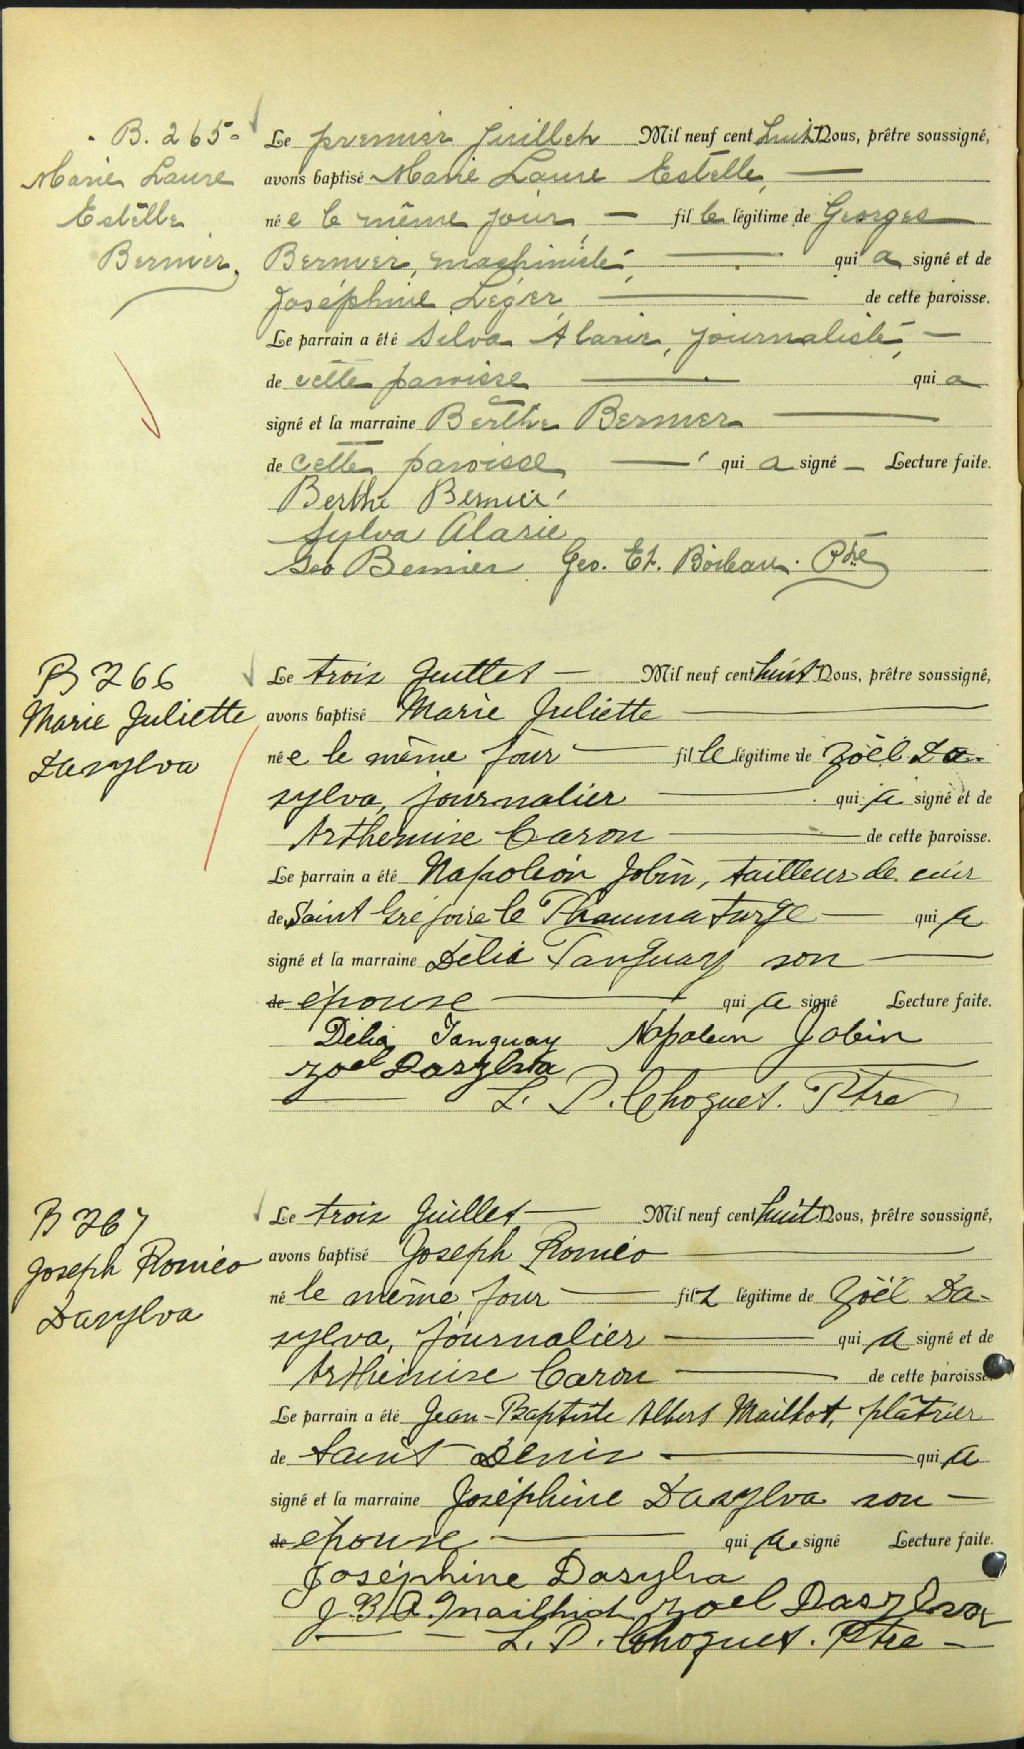 B. 265
Marie Laure
Estelle
Bernier
Le premier Juillet Mil neuf cent huit Nous, prêtre soussigné,
avons baptisé Marie Laure Estelle,
née le même jour, fille légitime de Georges
Bernier, machiniste, qui a signé et de
Joséphine Léger de cette paroisse.
Le parrain a été Silva Alarie, journaliste,
de cette paroisse qui a
signé et la marraine Berthe Bernier
de cette paroisse qui a signé Lecture faite.
Berthe Bernier
Sylva Alarie
Geo Bernier Geo. Et. Boileau. Ptre
B 266
Marie Juliette
Dasylva
Le trois Juillet Mil neuf cent huit Nous, prêtre soussigné,
avons baptisé Marie Juliette
née le même jour fille légitime de Zoël Da-
sylva, journalier qui a signé et de
Arthemise Caron de cette paroisse.
Le parrain a été Napoléon Jobin, tailleur de cuir
de Saint Grégoire le Thaumaturge qui a
signé et la marraine Délia Tanguay son
de épouse qui a signé Lecture faite.
Délia Tanguay Napoleon Jobin
Zoel Dasylva
L. P. Choquet. Ptre
B 267
Joseph Roméo
Dasylva
Le trois Juillet Mil neuf cent huit Nous, prêtre soussigné,
avons baptisé Joseph Roméo
né le même jour fils légitime de Zoël Da-
sylva, journalier qui a signé et de
Arthémise Caron de cette paroisse
Le parrain a été Jean-Baptiste Albert Mailhot, plâtrier
de Saint Denis qui a
signé et la marraine Joséphine Dasylva son
de épouse qui a signé Lecture faite.
Joséphine Dasylva
J. B. A. Mailhiot Zoel Dasylva
L. P. Choquet. Ptre